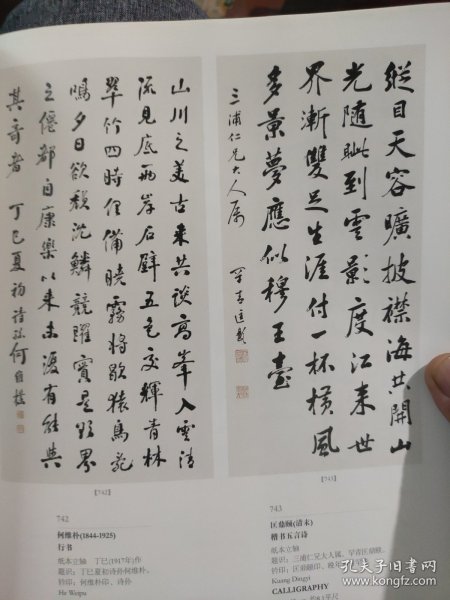 縱目天容曠披襟海共開山
光隨眦到雲影度江來世
界漸雙足生涯付一杯橫風
多景夢應似穆王臺
三浦仁兄大人属
山川之美古來共談高峯入雲清
流見底兩岸石壁五色交輝青林
翠竹四時俱備曉霧將歇猿鳥亂
鳴夕日欲頹沈鱗競躍實是欲界
之僊都自康樂以來未復有能與
其奇者 丁巳夏初詩孫何維樸
【742】
【743】
742
何维朴(1844-1925)
行书
纸本立轴 丁巳(1917年)作
题识：丁巳夏初诗孙何维朴。
钤印：何维朴印、诗孙
He Weipu
743
匡鼎颐(清末)
楷书五言诗
纸本立轴
题识：三浦仁兄大人属，
钤印：匡鼎颐印、
Kuang Dingyi
CALLIGRAPHY
孔夫子旧书网